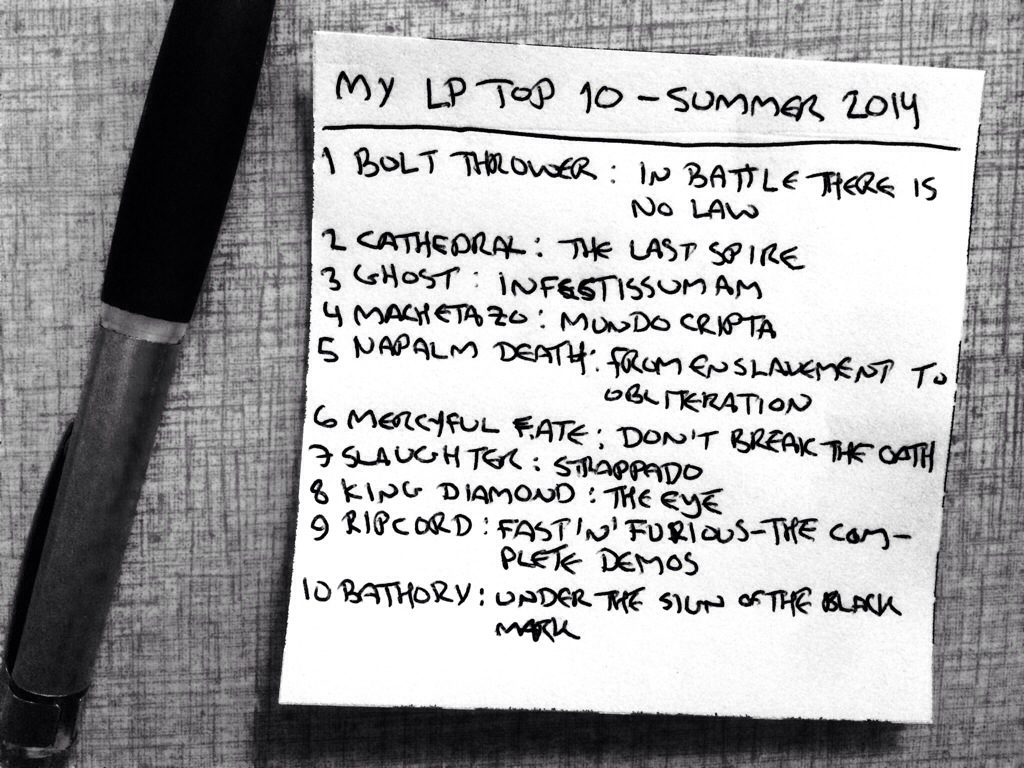 MY LP TOP 10 - SUMMER 2014
1 BOLT THROWER: IN BATTLE THERE IS
NO LAW
2 CATHEDRAL: THE LAST SPIRE
3 GHOST: INFESTISSUMAM
4 MACHETAZO: MUNDO CRIPTA
5 NAPALM DEATH: FROM ENSLAVEMENT TO
OBLITERATION
6 MERCYFUL FATE: DON'T BREAK THE OATH
7 SLAUGHTER: STRAPPADO
8 KING DIAMOND: THE EYE
9 RIPCORD: FAST 'N' FURIOUS-THE COM-
PLETE DEMOS
10 BATHORY: UNDER THE SIGN OF THE BLACK
MARK